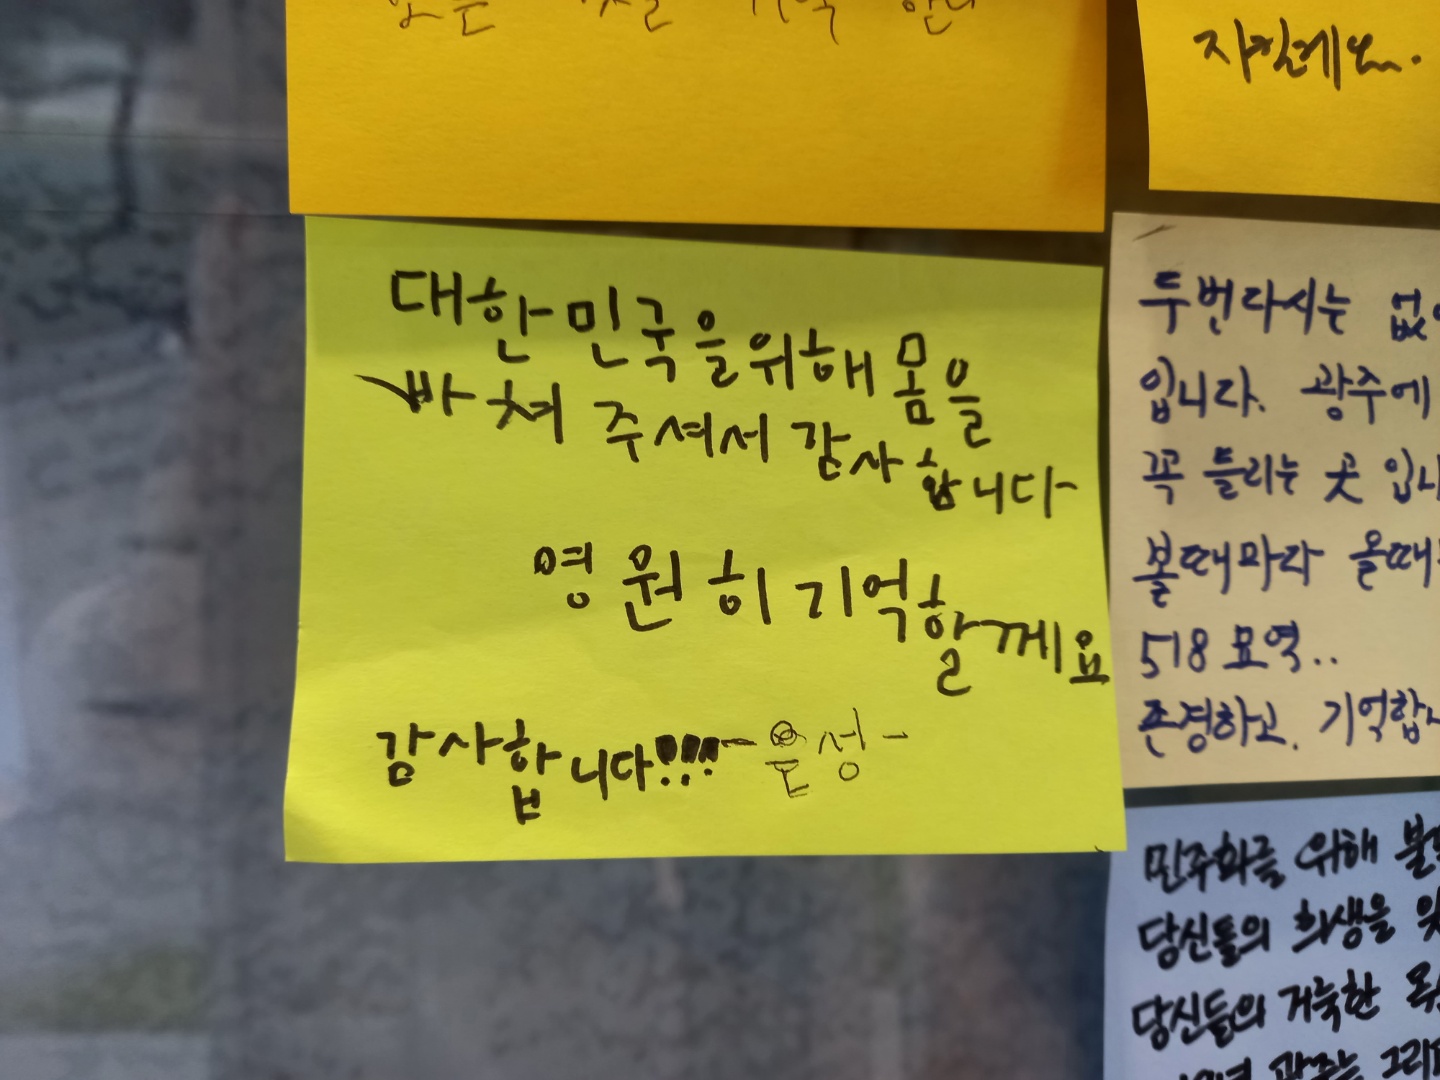 자킬게요..
대한민국을위해 몸을
바쳐 주셔서 감사합니다
영원히 기억할께요
감사합니다!!! -은성-
두번다시는
입니다. 광주에
꼭 들리는 곳
볼때마다
518 묘역..
존경하고.
민주화를 위해
당신들의 희생을
당신들의 거룩한